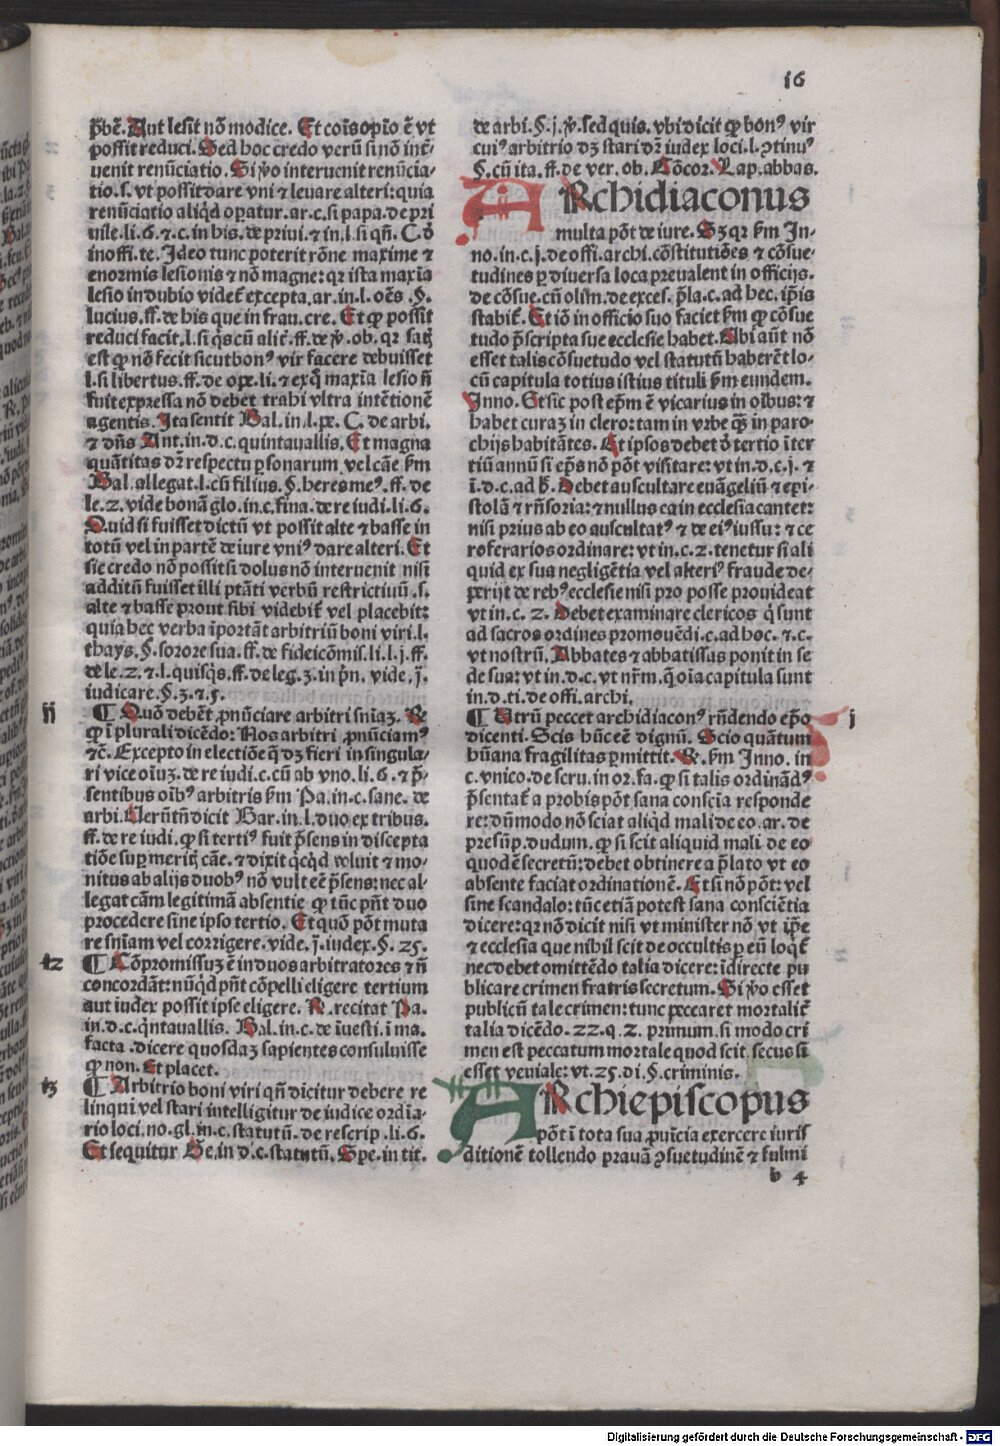 16
p̄bē. Aut lesit nō modice. Et cōis opio ē vt
possit reduci. Sed hoc credo verū si nō int̄-
uenit renūciatio. Si ꝟo interuenit renūcia-
tio.s. vt possit dare vni ⁊ leuare alteri: quia
renūciatio aliqd operatur. ar.c. si papa. de pri
uile.li.6. ⁊ c. in his. de priui. ⁊ in l. si qn̄. C. ō
inoffi.te. Ideo tunc poterit rōne maxime ⁊
enormis lesionis ⁊ nō magne: qr ista maxīa
lesio in dubio videt̄ excepta. ar. in.l. oēs .§.
lucius. ff. de his que in frau. cre. Et ꝙ possit
reduci facit. l. si qscū alic̄. ff. de ꝟ. ob. qr satꝭ
est ꝙ nō fecit sicut bonꝰ vir facere debuisset
l. si libertus. ff. de ope. li. ⁊ ex q̄ maxīa lesio n̄
fuit expressa nō debet trahi vltra intētionē
agentis. Ita sentit Bal. in.l. pe. C. de arbi.
⁊ dn̄s Ant. in.d.c. quintauallis. Et magna
quātitas dr̄ respectu ꝑsonarum vel cāe ẜm
Bal. allegat. l. cū filius. §. heres meꝰ. ff. de
le.2. vide bonā glo. in.c. fina. de re iudi. li.6.
Quid si fuisset dictū vt possit alte ⁊ basse in
totū vel in partē de iure vniꝰ dare alteri. Et
sic credo nō possit si dolus nō interuenit nisi
additū fuisset illi ptāti verbū restrictiuū .s.
alte ⁊ basse prout sibi videbit̄ vel placebit:
quia hec verba īportāt arbitriū boni viri. l.
thays. §. sorore sua. ff. de fideicōmis. li. l. j. ff.
de le.2. ⁊ l. quisqs. ff. de leg.3. in pn̄. vide. j̄.
iudicare. §. 3. ⁊ 5.
ij
¶ Quō debēt ꝓnūciare arbitri sn̄iaꝫ. ℞.
ꝙ ī plurali dicēdo: Nos arbitri ꝓnūciamꝰ
⁊c̄. Excepto in electiōe q̄ dꝫ fieri in singula-
ri vice oīuꝫ. de re iudi. c. cū ab vno. li.6. ⁊ p̄-
sentibus oībꝰ arbitris ẜm Pa. in.c. sane. de
arbi. Uerūtn̄ dicit Bar. in.l. duo ex tribus.
ff. de re iudi. ꝙ si tertiꝰ fuit p̄sens in discepta
tiōe suꝑ meritꝭ cāe. ⁊ dixit qcqd voluit ⁊ mo-
nitus ab alijs duobꝰ nō vult eē p̄sens: nec al-
legat cām legitimā absentie ꝙ tūc pn̄t duo
procedere sine ipso tertio. Et quō pōt muta
re sn̄iam vel corrigere. vide. j̄. iudex. §. 25.
12
¶ Cōpromissuꝫ ē in duos arbitratores ⁊ n̄
concordāt: nūqd pn̄t cōpelli eligere tertium
aut iudex possit ipse eligere. ℞. recitat Pa.
in.d.c. qntauallis. Bal. in.c. de īuesti. ī ma.
facta .dicere quosdaꝫ sapientes consuluisse
ꝙ non. Et placet.
13
¶ Arbitrio boni viri qn̄ dicitur debere re
linqui vel stari intelligitur de iudice ordīa-
rio loci. no. gl. in.c. statutū. de rescrip .li.6.
Et sequitur Ge. in d.c. statutū. Spe. in tit.
de arbi. §. j. ꝟ. sed quis. vbi dicit ꝙ bonꝰ vir
cuiꝰ arbitrio dꝫ stari dr̄ iudex loci. l. ꝯtinuꝰ
§. cū ita. ff. de ver. ob. Cōcor. Lap. abbas.
ARchidiaconus
multa pōt de iure. Sꝫ qr ẜm In-
no. in.c. j. de offi. archi. cōstitutiōes ⁊ cōsue-
tudines ꝑ diuersa loca preualent in officijs.
de cōsue. cū olim. de exces. p̄la. c. ad hec. ip̄is
stabit̄. Et iō in officio suo faciet ẜm ꝙ cōsue
tudo p̄scripta sue ecclesie habet. Ubi aūt nō
esset talis cōsuetudo vel statutū haberēt lo-
cū capitula totius istius tituli ẜm eundem.
Inno. Et sic post ep̄m ē vicarius in oībus: ⁊
habet curaꝫ in clero: tam in vrbe qꝫ in paro-
chijs habitātes. Et ipsos debet ō tertio ī ter
tiū annū si ep̄s nō pōt visitare: vt in.d.c.j. ⁊
ī.d.c. ad h̄. Debet auscultare euāgeliū ⁊ epi-
stolā ⁊ rn̄soria: ⁊ nullus ea in ecclesia cantet:
nisi prius ab eo auscultatꝰ ⁊ de eiꝰ iussu: ⁊ ce
roferarios ordinare: vt in.c.2. tenetur si ali
quid ex sua negligētia vel alteriꝰ fraude de-
perijt de rebꝰ ecclesie nisi pro posse prouideat
vt in.c. 2. Debet examinare clericos q̄ sunt
ad sacros ordines promouēdi. c. ad hoc. ⁊.c.
vt nostrū. Abbates ⁊ abbatissas ponit in se
de sua: vt in.d.c. vt nr̄m. q̄ oīa capitula sunt
in.d.ti. de offi. archi.
j
¶ Utrū peccet archidiaconꝰ rn̄dendo ep̄o
dicenti. Scis hūc eē dignū. Scio quātum
hūana fragilitas ꝑmittit. ℞. ẜm Inno. in
c. vnico. de scru. in or. fa. ꝙ si talis ordinādꝰ
p̄sentat̄ a probis pōt sana conscīa responde
re: dūmodo nō sciat aliqd mali de eo. ar. de
presūp. dudum. ꝙ si scit aliquid mali de eo
quod ē secretū: debet obtinere a p̄lato vt eo
absente faciat ordinationē. Et si nō pōt: vel
sine scandalo: tūc etiā potest sana consciētia
dicere: qr nō dicit nisi vt minister nō vt ip̄e
⁊ ecclesia que nihil scit de occultis ꝑ eū loqt̄
nec debet omittēdo talia dicere: īdirecte pu
blicare crimen fratris secretum. Si ꝟo esset
publicū tale crimen: tunc peccaret mortalit̄
talia dicēdo. 22. q. 2. primum. si modo cri
men est peccatum mortale quod scit. secus si
esset veniale: vt. 25. di. §. criminis.
ARchiepiscopus
pōt ī tota sua ꝓuīcia exercere iuris
ditionē tollendo prauā ꝯsuetudinē ⁊ fulmi
b 4
Digitalisierung gefördert durch die Deutsche Forschungsgemeinschaft - DFG